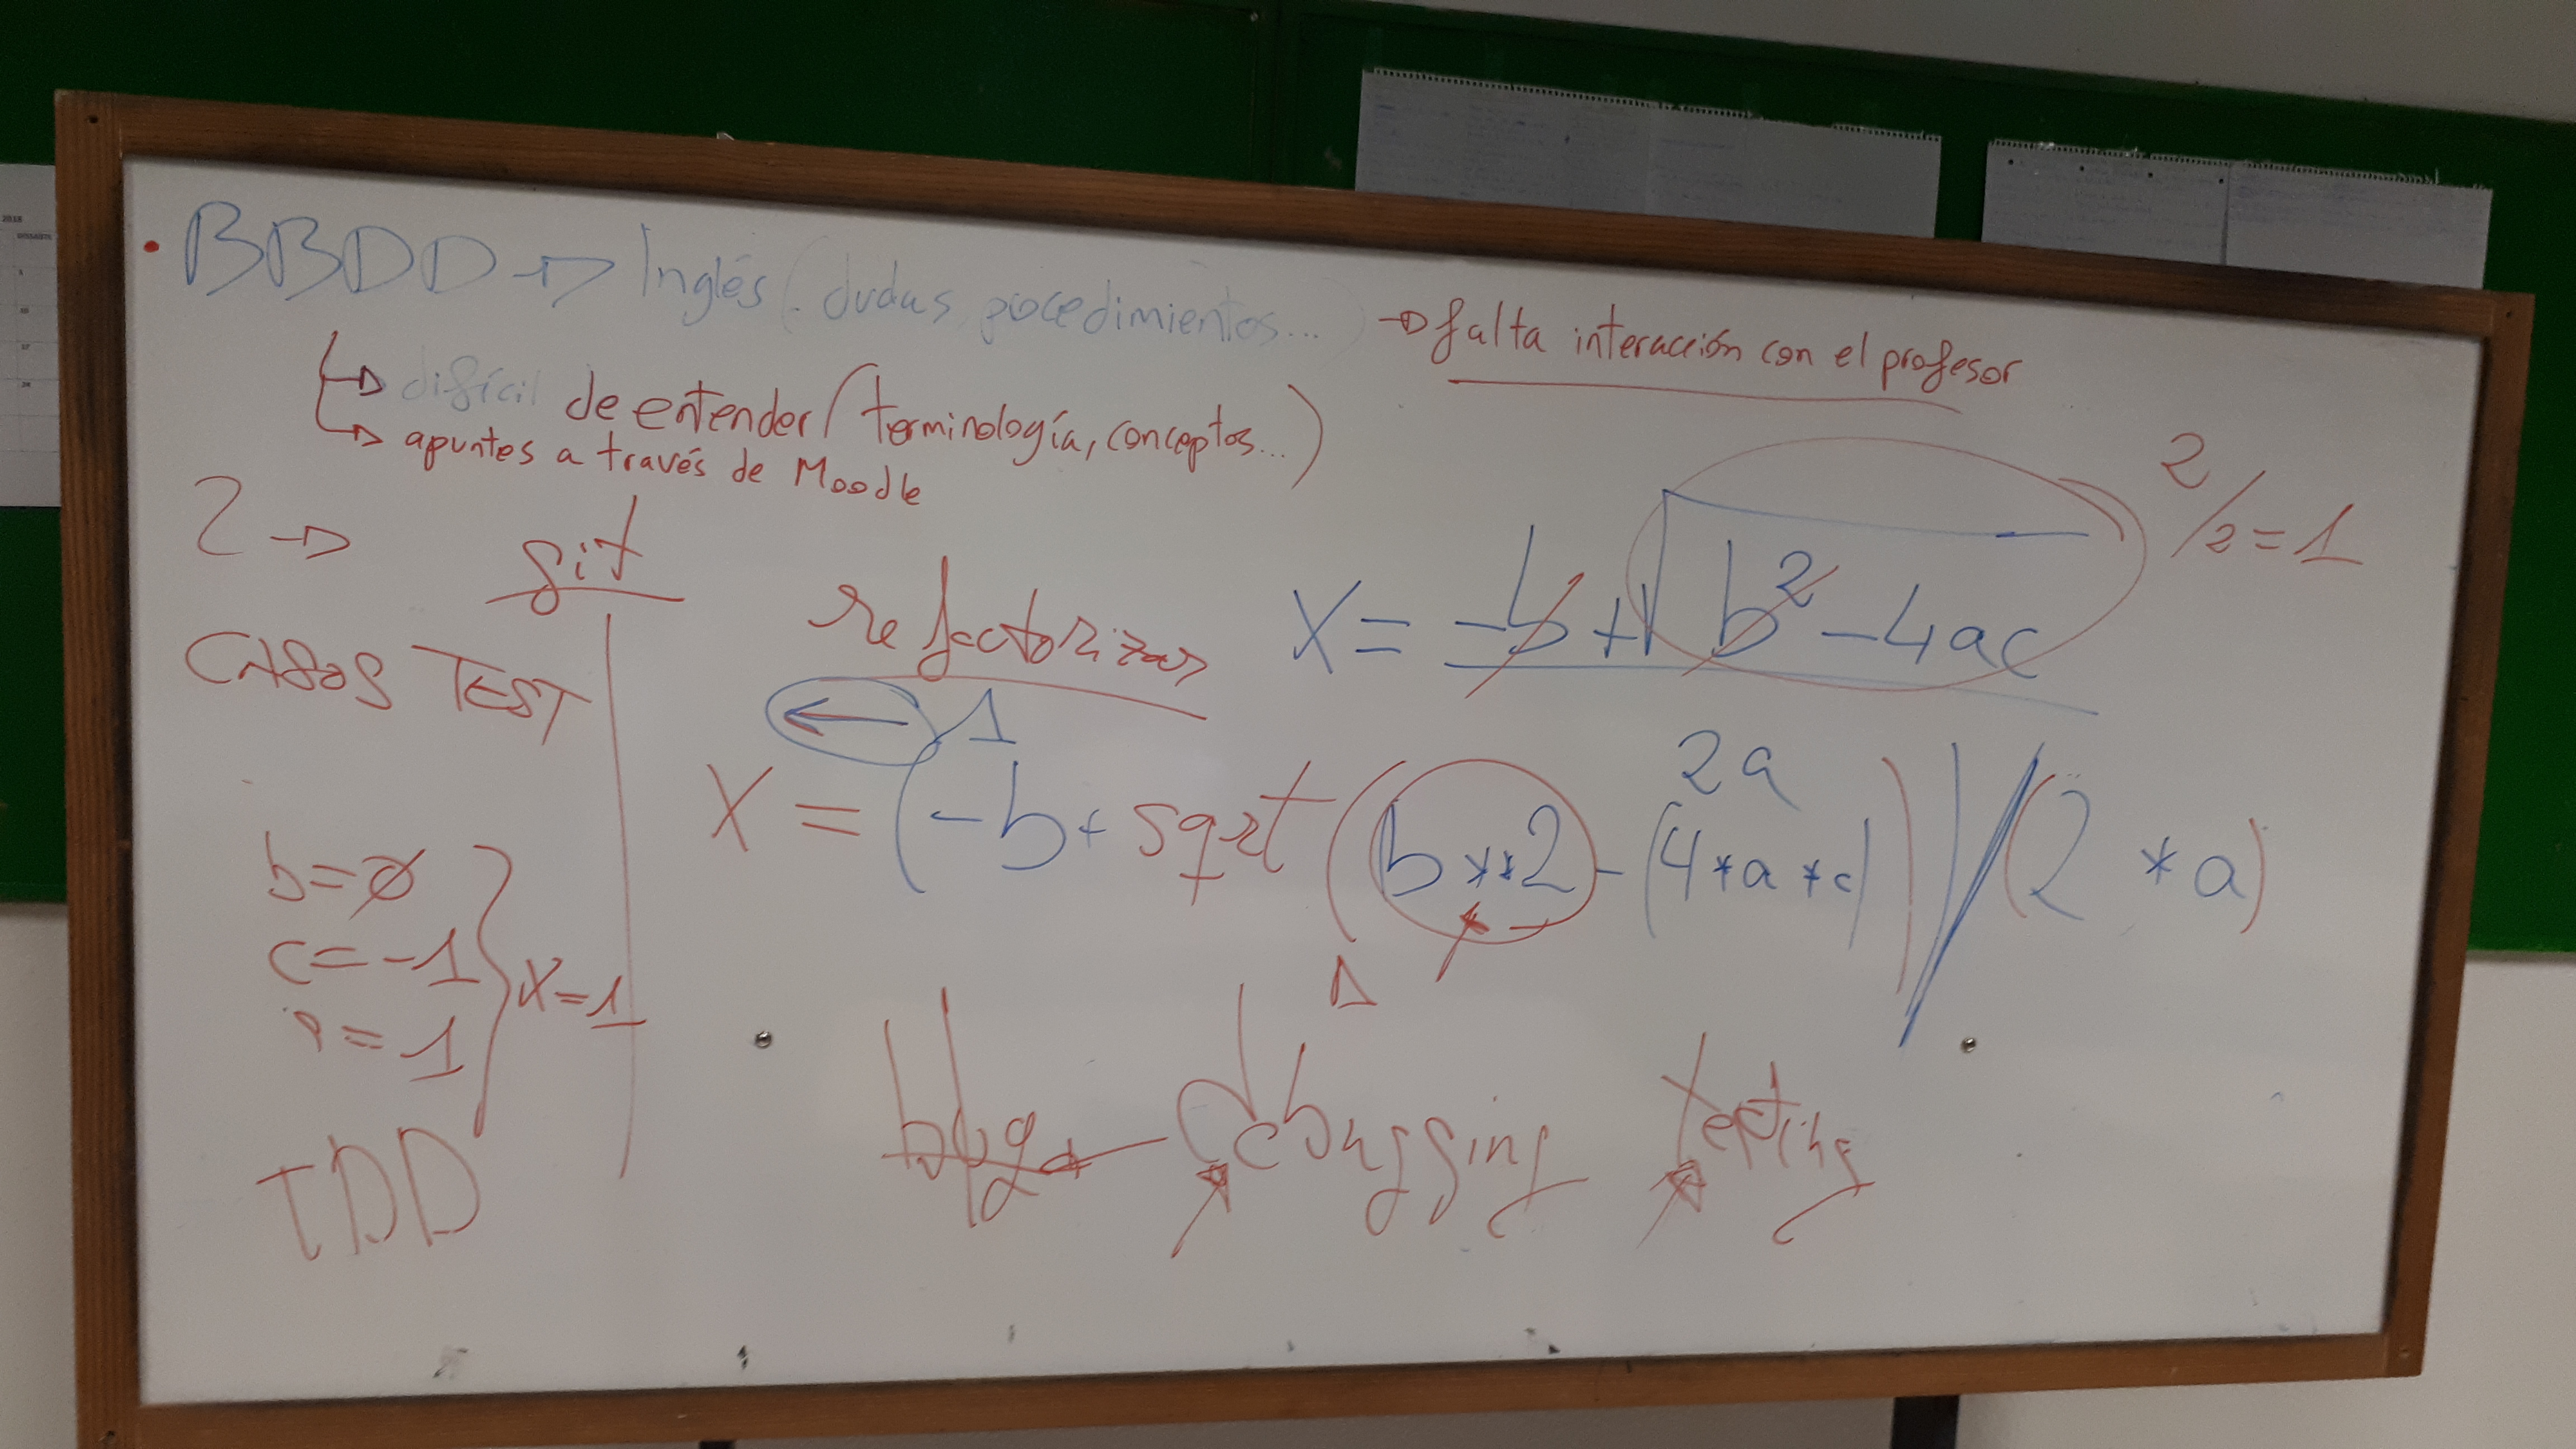 BBDD → Inglés (dudas, procedimientos...) → falta interacción con el profesor
→ difícil de entender (terminología, conceptos...)
→ apuntes a través de Moodle
2 → git
2/2 = 1
refactorizar
x = -b + √b² - 4ac
2a
CASOS TEST
← 1
x = (-b + sqrt(b**2 - (4*a*c)))/(2 * a)
b = ø
c = -1
x = 1
= 1
bug ← debugging testing
TDD